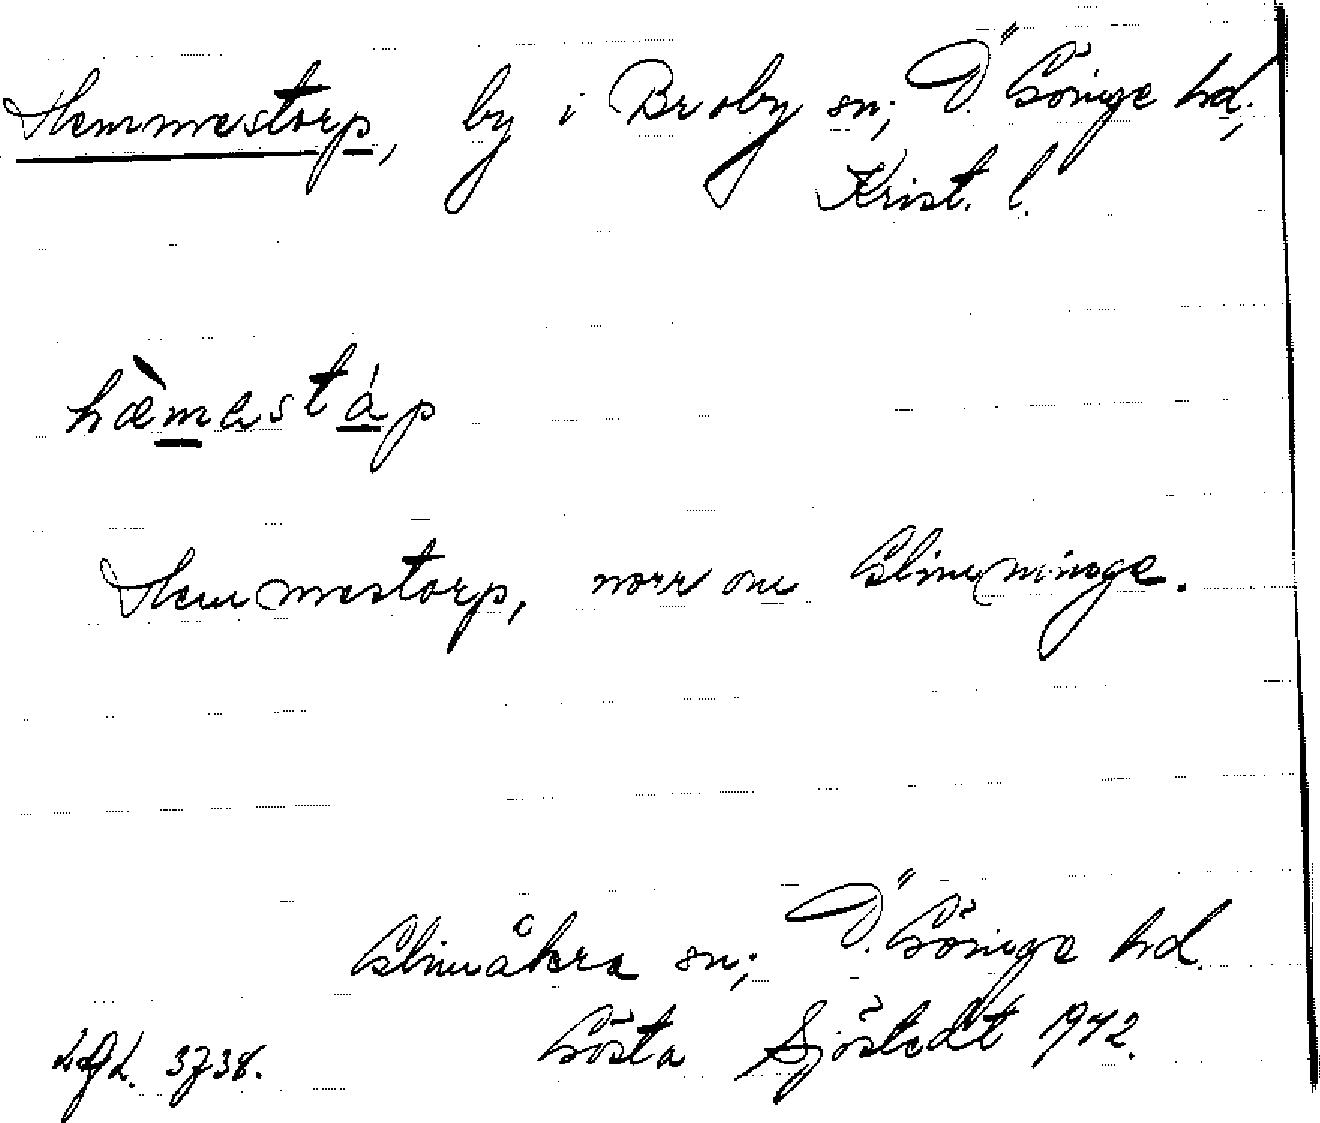 Hemmestorp, by i Broby sn; Ö. Göinge hd;
Krist. l.
hæ̀mastáp
Hemmestorp, norr om Glimminge.
Glimåkra sn; Ö. Göinge hd.
Gösta Sjöstedt 1942.
3738.